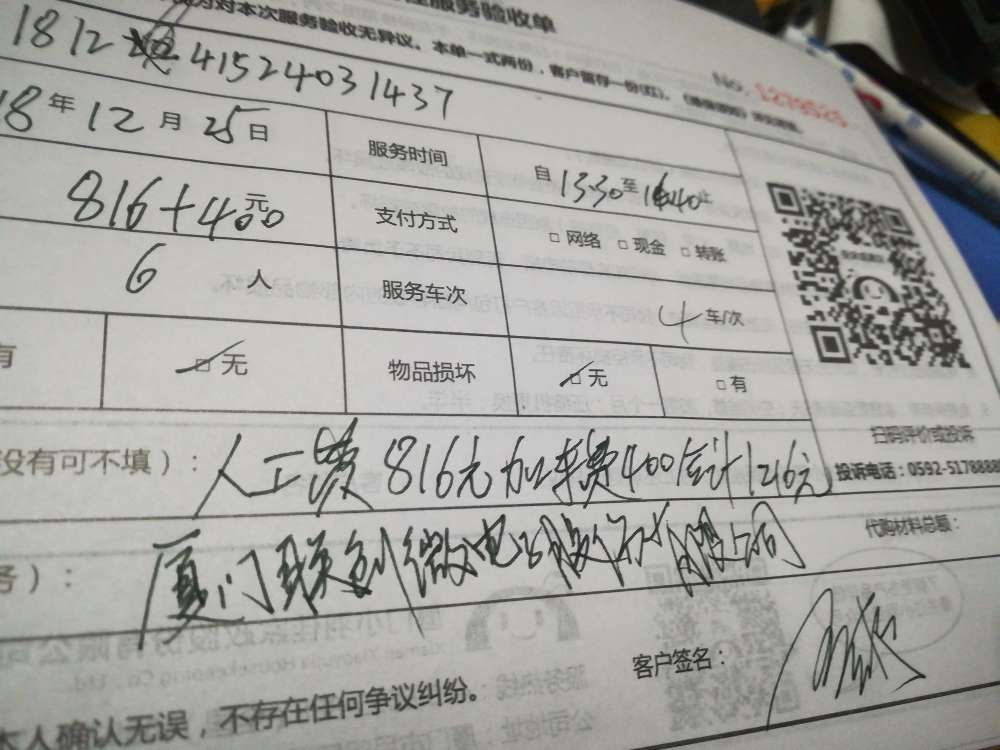 服务验收单
对本次服务验收无异议。本单一式两份，客户留存一份(红)。
No. 1279525
1812 415241031437
18年12月25日 服务时间 自13:30至16:40止
816+400元 支付方式 □网络 □现金 □转账
6人 服务车次 4车/次
有 □无 物品损坏 □无 □有
扫码评价或投诉
投诉电话：0592-5178888
没有可不填）： 人工费816元加车费400合计1216元
代购材料总额：
务）： 厦门联创微电子股份有限公司
客户签名：
本人确认无误，不存在任何争议纠纷。